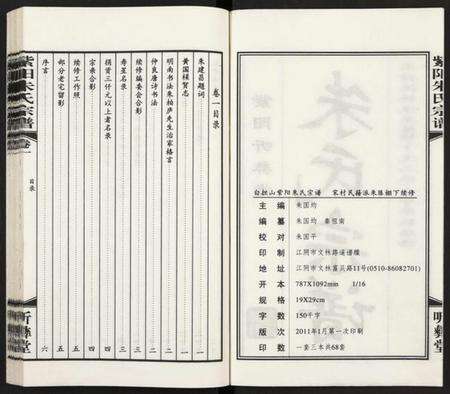 紫阳朱氏宗谱
卷一
目录
听彝堂
卷一目录
朱建昌题词 一
黄国桢贺志 一
明南书法朱柏庐先生治家格言 二
仲良唐诗书法 二
寿星名录 三
续修编委会合影 三
捐资三仟元以上者名录 四
宗亲合影 四
续修工作照 五
部分老宅留影 五
序言 六
紫阳朱氏宗谱
听彝堂
白担山紫阳朱氏宗谱 宋村民籍派朱陈榭下续修
主 编 朱国均
编 纂 朱国均 秦祖南
校 对 朱国平
印 制 江阴市文林路谱谱楼
地 址 江阴市文林富贝路11号(0510-86082701)
开 本 787X1092mm 1/16
规 格 19X29cm
字 数 150千字
版 次 2011年1月第一次印刷
印 数 一套三本共68套